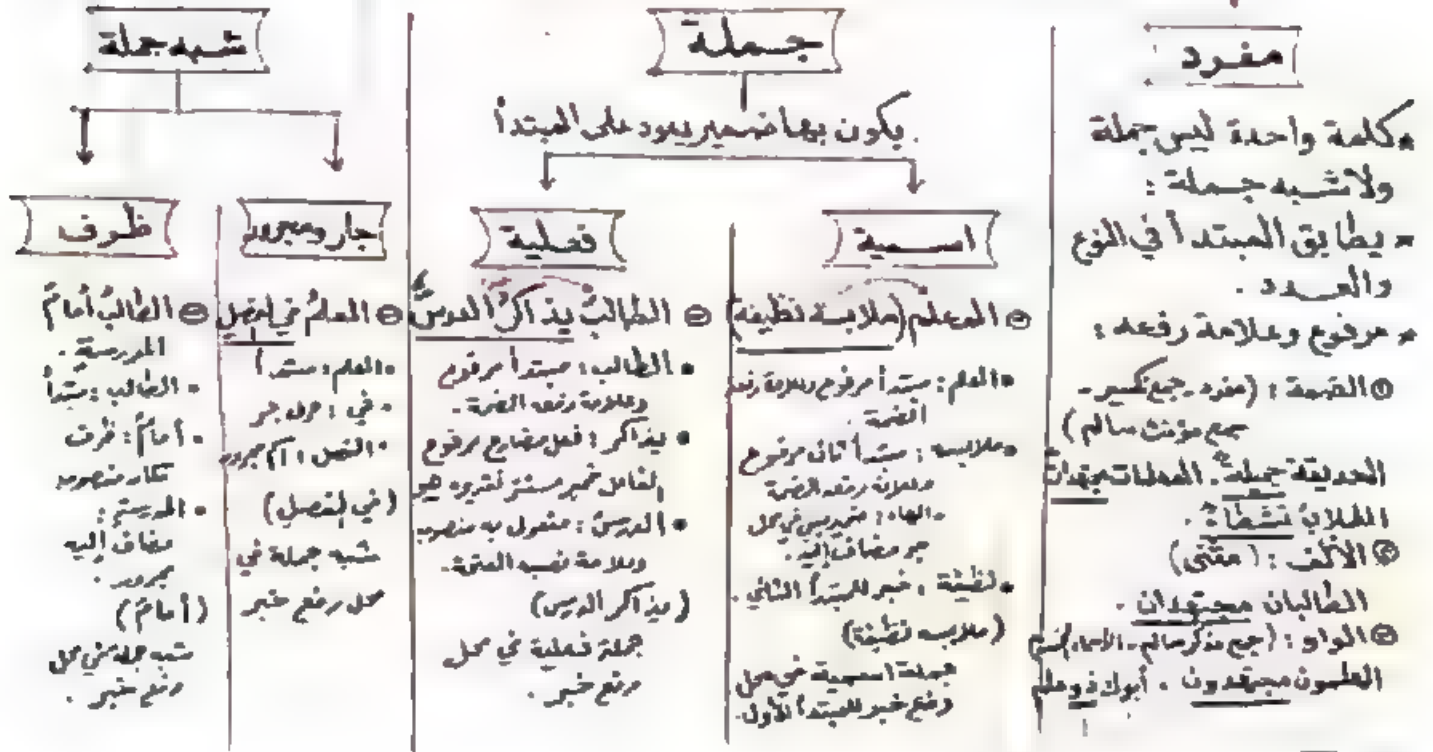 مفرد
*كلمة واحدة ليس جملة
ولا شبه جملة :
* يطابق المبتدأ في النوع
والعدد .
* مرفوع وعلامة رفعه :
① الضمة : (مفرد - جمع تكسير -
جمع مؤنث سالم)
الحديقة جميلةٌ . المعلمات مجتهداتٌ
الطلابُ نشطاءُ .
② الألف : (مثنى)
الطالبان مجتهدان .
③ الواو : (جمع مذكر سالم - الأسماء
المعلمون مجتهدون . أبوك ذو علم
جملة
يكون بها ضمير يعود على المبتدأ .
اسمية
المعلم (ملابسه نظيفة)
• المعلم : مبتدأ مرفوع وعلامة رفعه
الضمة .
• ملابسه : مبتدأ ثانى مرفوع
وعلامة رفعه الضمة
• الهاء : ضمير مبني في محل
جر مضاف إليه .
• نظيفة : خبر للمبتدأ الثاني .
(ملابسه نظيفة)
جملة اسمية في محل
رفع خبر للمبتدأ الأول .
فعلية
الطالبُ يذاكرُ الدرسَ
• الطالب : مبتدأ مرفوع
وعلامة رفعه الضمة .
• يذاكر : فعل مضارع مرفوع
الفاعل ضمير مستتر تقديره هو
• الدرسَ : مفعول به منصوب
وعلامة نصبه الفتحة .
(يذاكر الدرس)
جملة فعلية في محل
رفع خبر .
شبه جملة
جار ومجرور
المعلمُ في الفصل
• المعلم : مبتدأ
• في : حرف جر
• الفصل : اسم مجرور
(في الفصل)
شبه جملة في
محل رفع خبر
ظرف
الطالبُ أمامَ
المدرسة .
• الطالب : مبتدأ
• أمامَ : ظرف
مكان منصوب
• المدرسة :
مضاف إليه
مجرور .
(أمامَ)
شبه جملة في محل
رفع خبر .